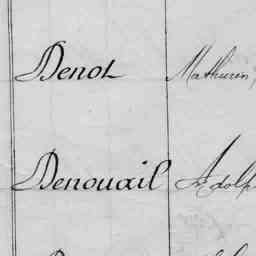 Denot Mathurin
Denouail Adolp